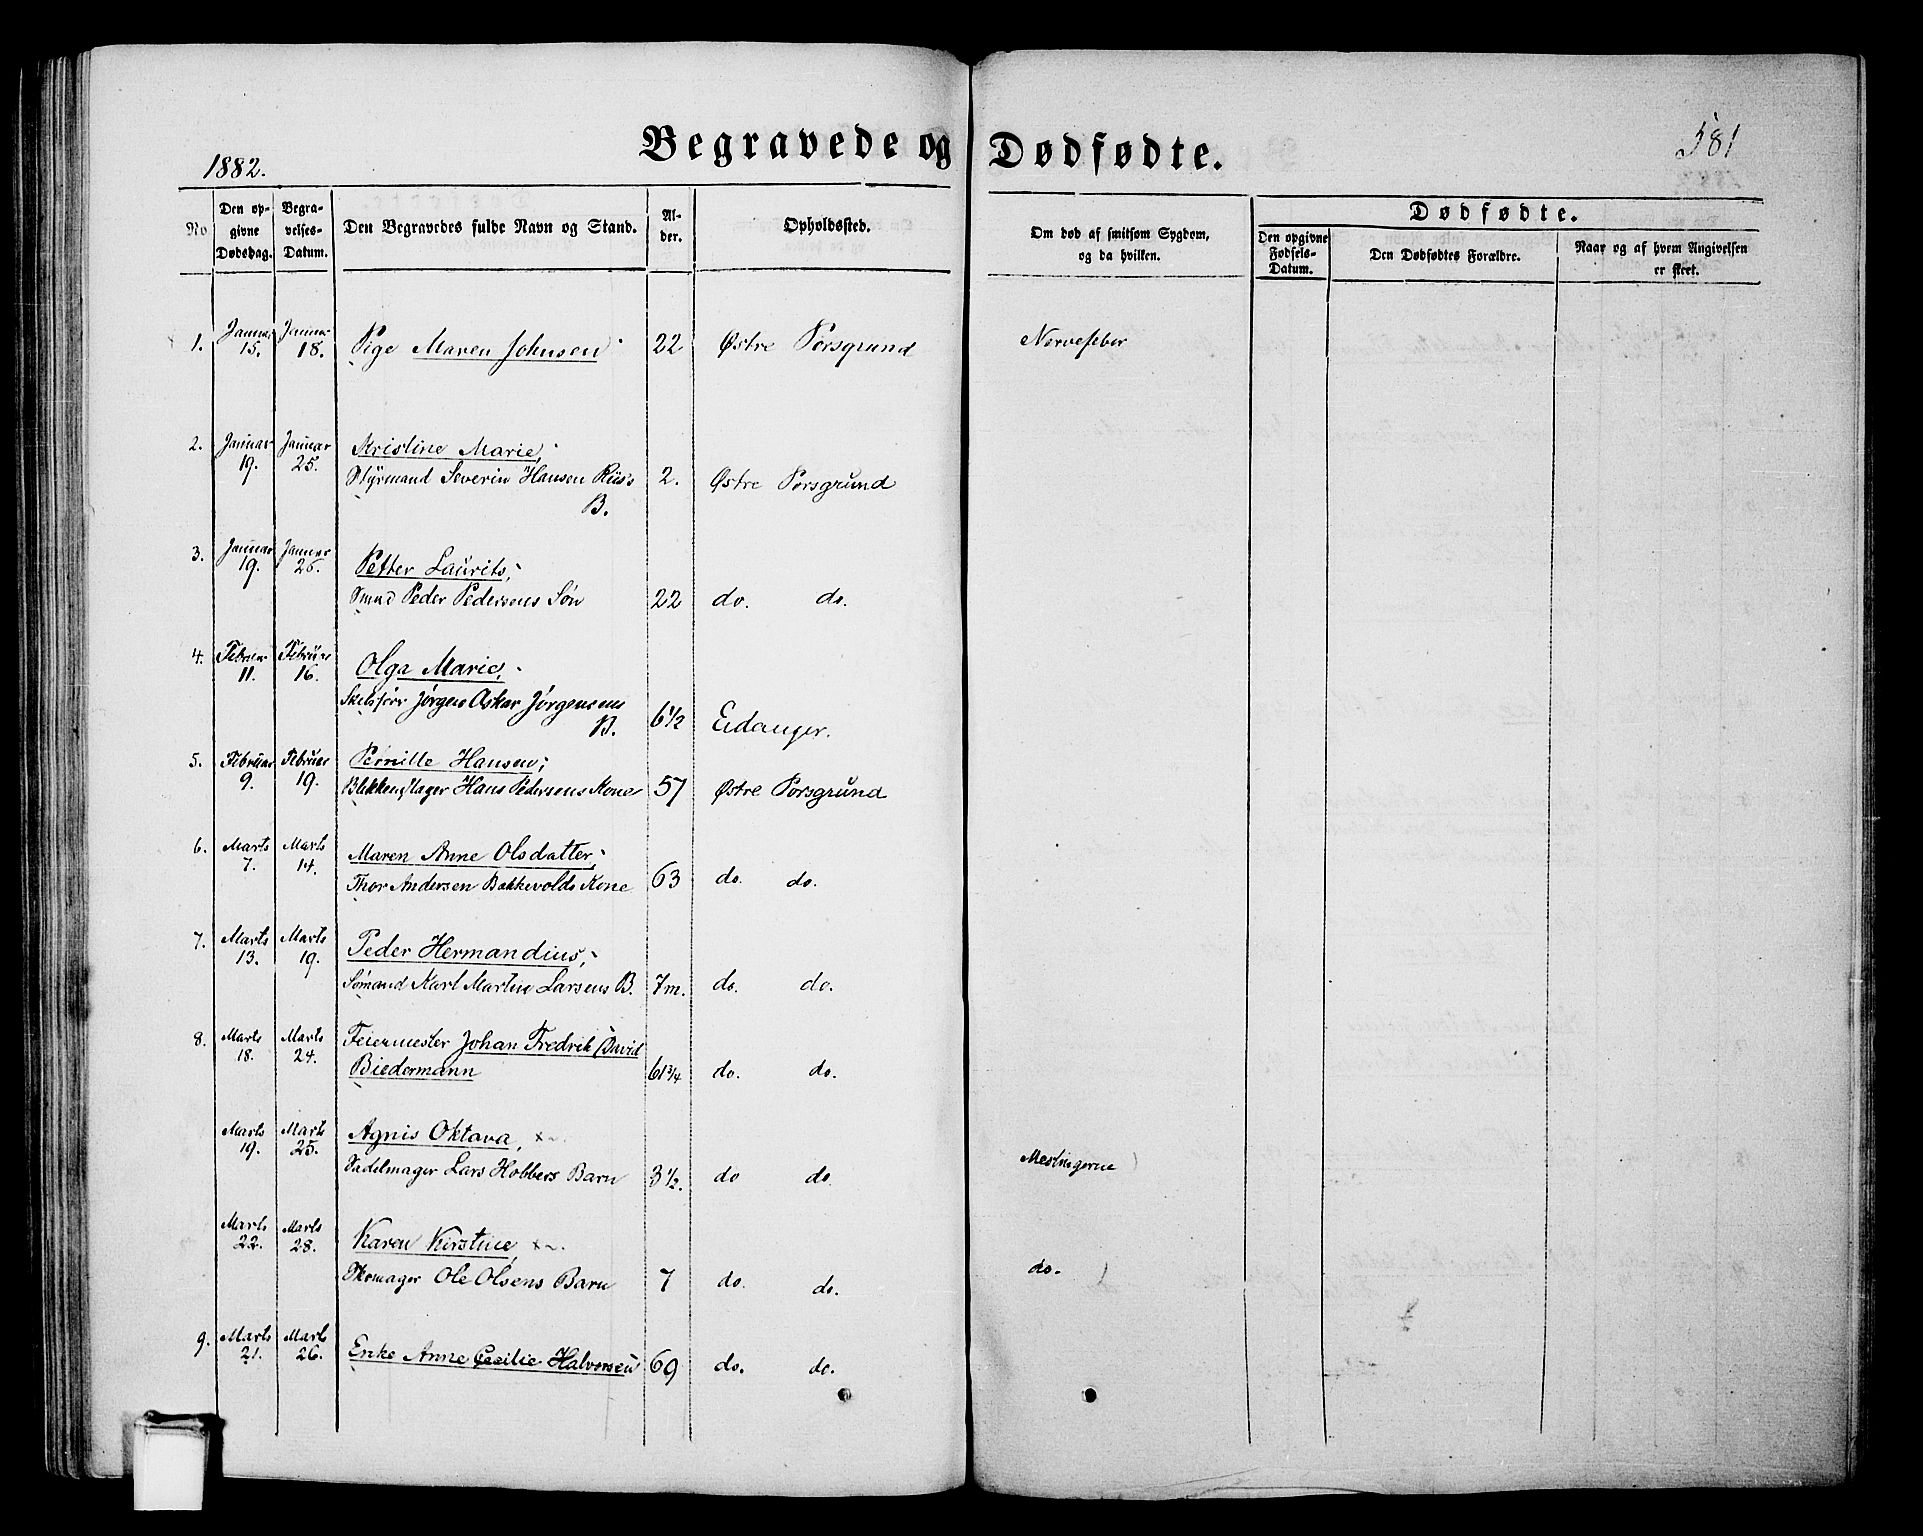 1882.
Begravede og Dødfødte.
581
No
Den opgivne Dødsdag.
Begravelses-Datum.
Den Begravedes fulde Navn og Stand.
Alder.
Opholdssted.
Om død af smitsom Sygdom, og da hvilken.
Dødfødte.
Den opgivne Fødsels-Datum.
Den Dødfødtes Forældre.
Naar og af hvem Angivelsen er skeet.
1. Januar 15. Januar 18. Pige Maren Johnsen 22 Østre Porsgrund Nervefeber
2. Januar 19. Januar 25. Kristine Marie,
Styrmand Severin Hansen Riis's 2. Østre Porsgrund
B.
3. Januar 19. Januar 26. Petter Laurits,
Smed Peder Pedersens Søn 22 do. do.
4. Februar 11. Februar 16. Olga Marie,
Jørgen Oskar Jørgensens
B. 6 1/2 Eidanger.
5. Februar 9. Februar 19. Pernille Hansen;
Blikkenslager Hans Pedersens Kone 57 Østre Porsgrund
6. Marts 7. Marts 14. Maren Anne Olsdatter,
Thor Andersen Bakkevolds Kone 63 do. do.
7. Marts 13. Marts 19. Peder Hermandius,
Sømand Karl Martin Larsens B. 7m. do. do.
8. Marts 18. Marts 24. Feiermester Johan Fredrik David
Biedermann 61 3/4 do. do.
Marts 19. Marts 25. Agnis Oktava,
Sadelmager Lars Hobbers Barn 3 1/2. do do. Meslingerne
Marts 22. Marts 28. Karen Kirstine,
Skomager Ole Olsens Barn 7 do. do. do.
9. Marts 21. Marts 26. Enke Anne Cecilie Halvorsen 69 do. do.